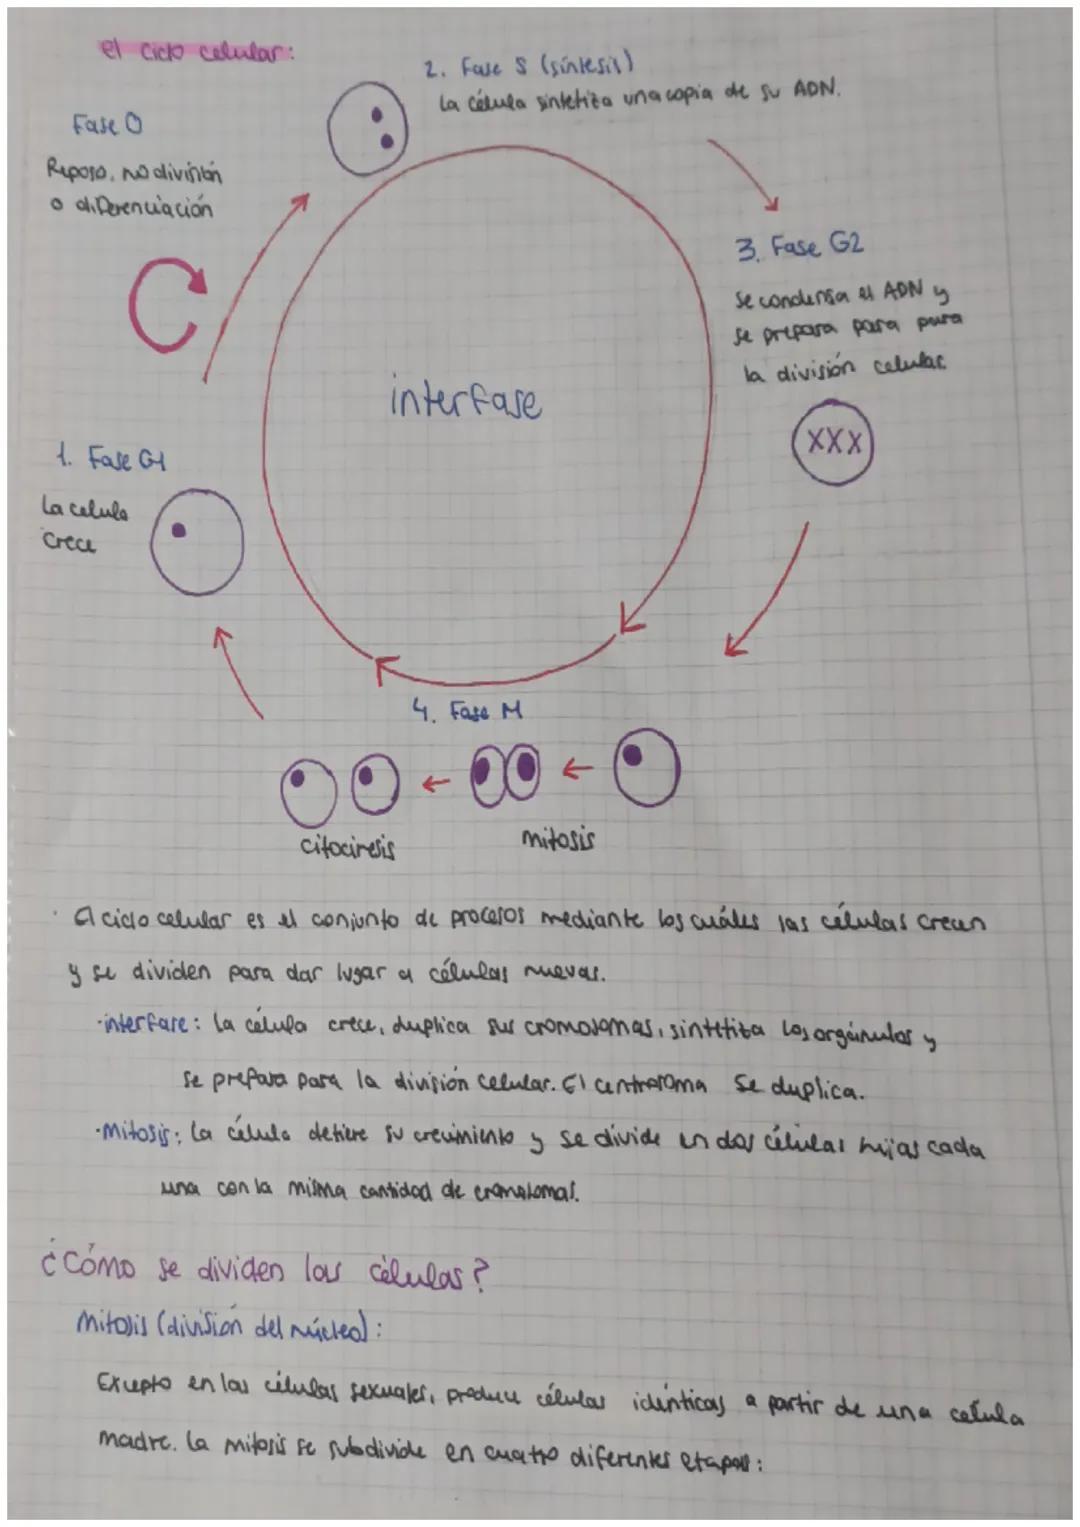 el ciclo celular:
Fase 0
Reposo, no división
o diferenciación
2. Fase S (síntesis)
La célula sintetiza una copia de su ADN.
3. Fase G2
Se condensa el ADN y
se prepara para para
la división celular.
XXX
interfase
1. Fase G1
La celula
crece
4. Fase M
citocinesis
mitosis
El ciclo celular es el conjunto de procesos mediante los cuáles las células crecen
y se dividen para dar lugar a células nuevas.
·interfase: La célula crece, duplica sus cromosomas, sintetiza los orgánulos y
se prepara para la división celular. El centrosoma se duplica.
·Mitosis: La célula detiene su crecimiento y se divide en dos células hijas cada
una con la misma cantidad de cromosomas.
¿Cómo se dividen las células?
Mitosis (división del núcleo):
Excepto en las células sexuales, produce células idénticas a partir de una celula
madre. La mitosis se subdivide en cuatro diferentes etapas: